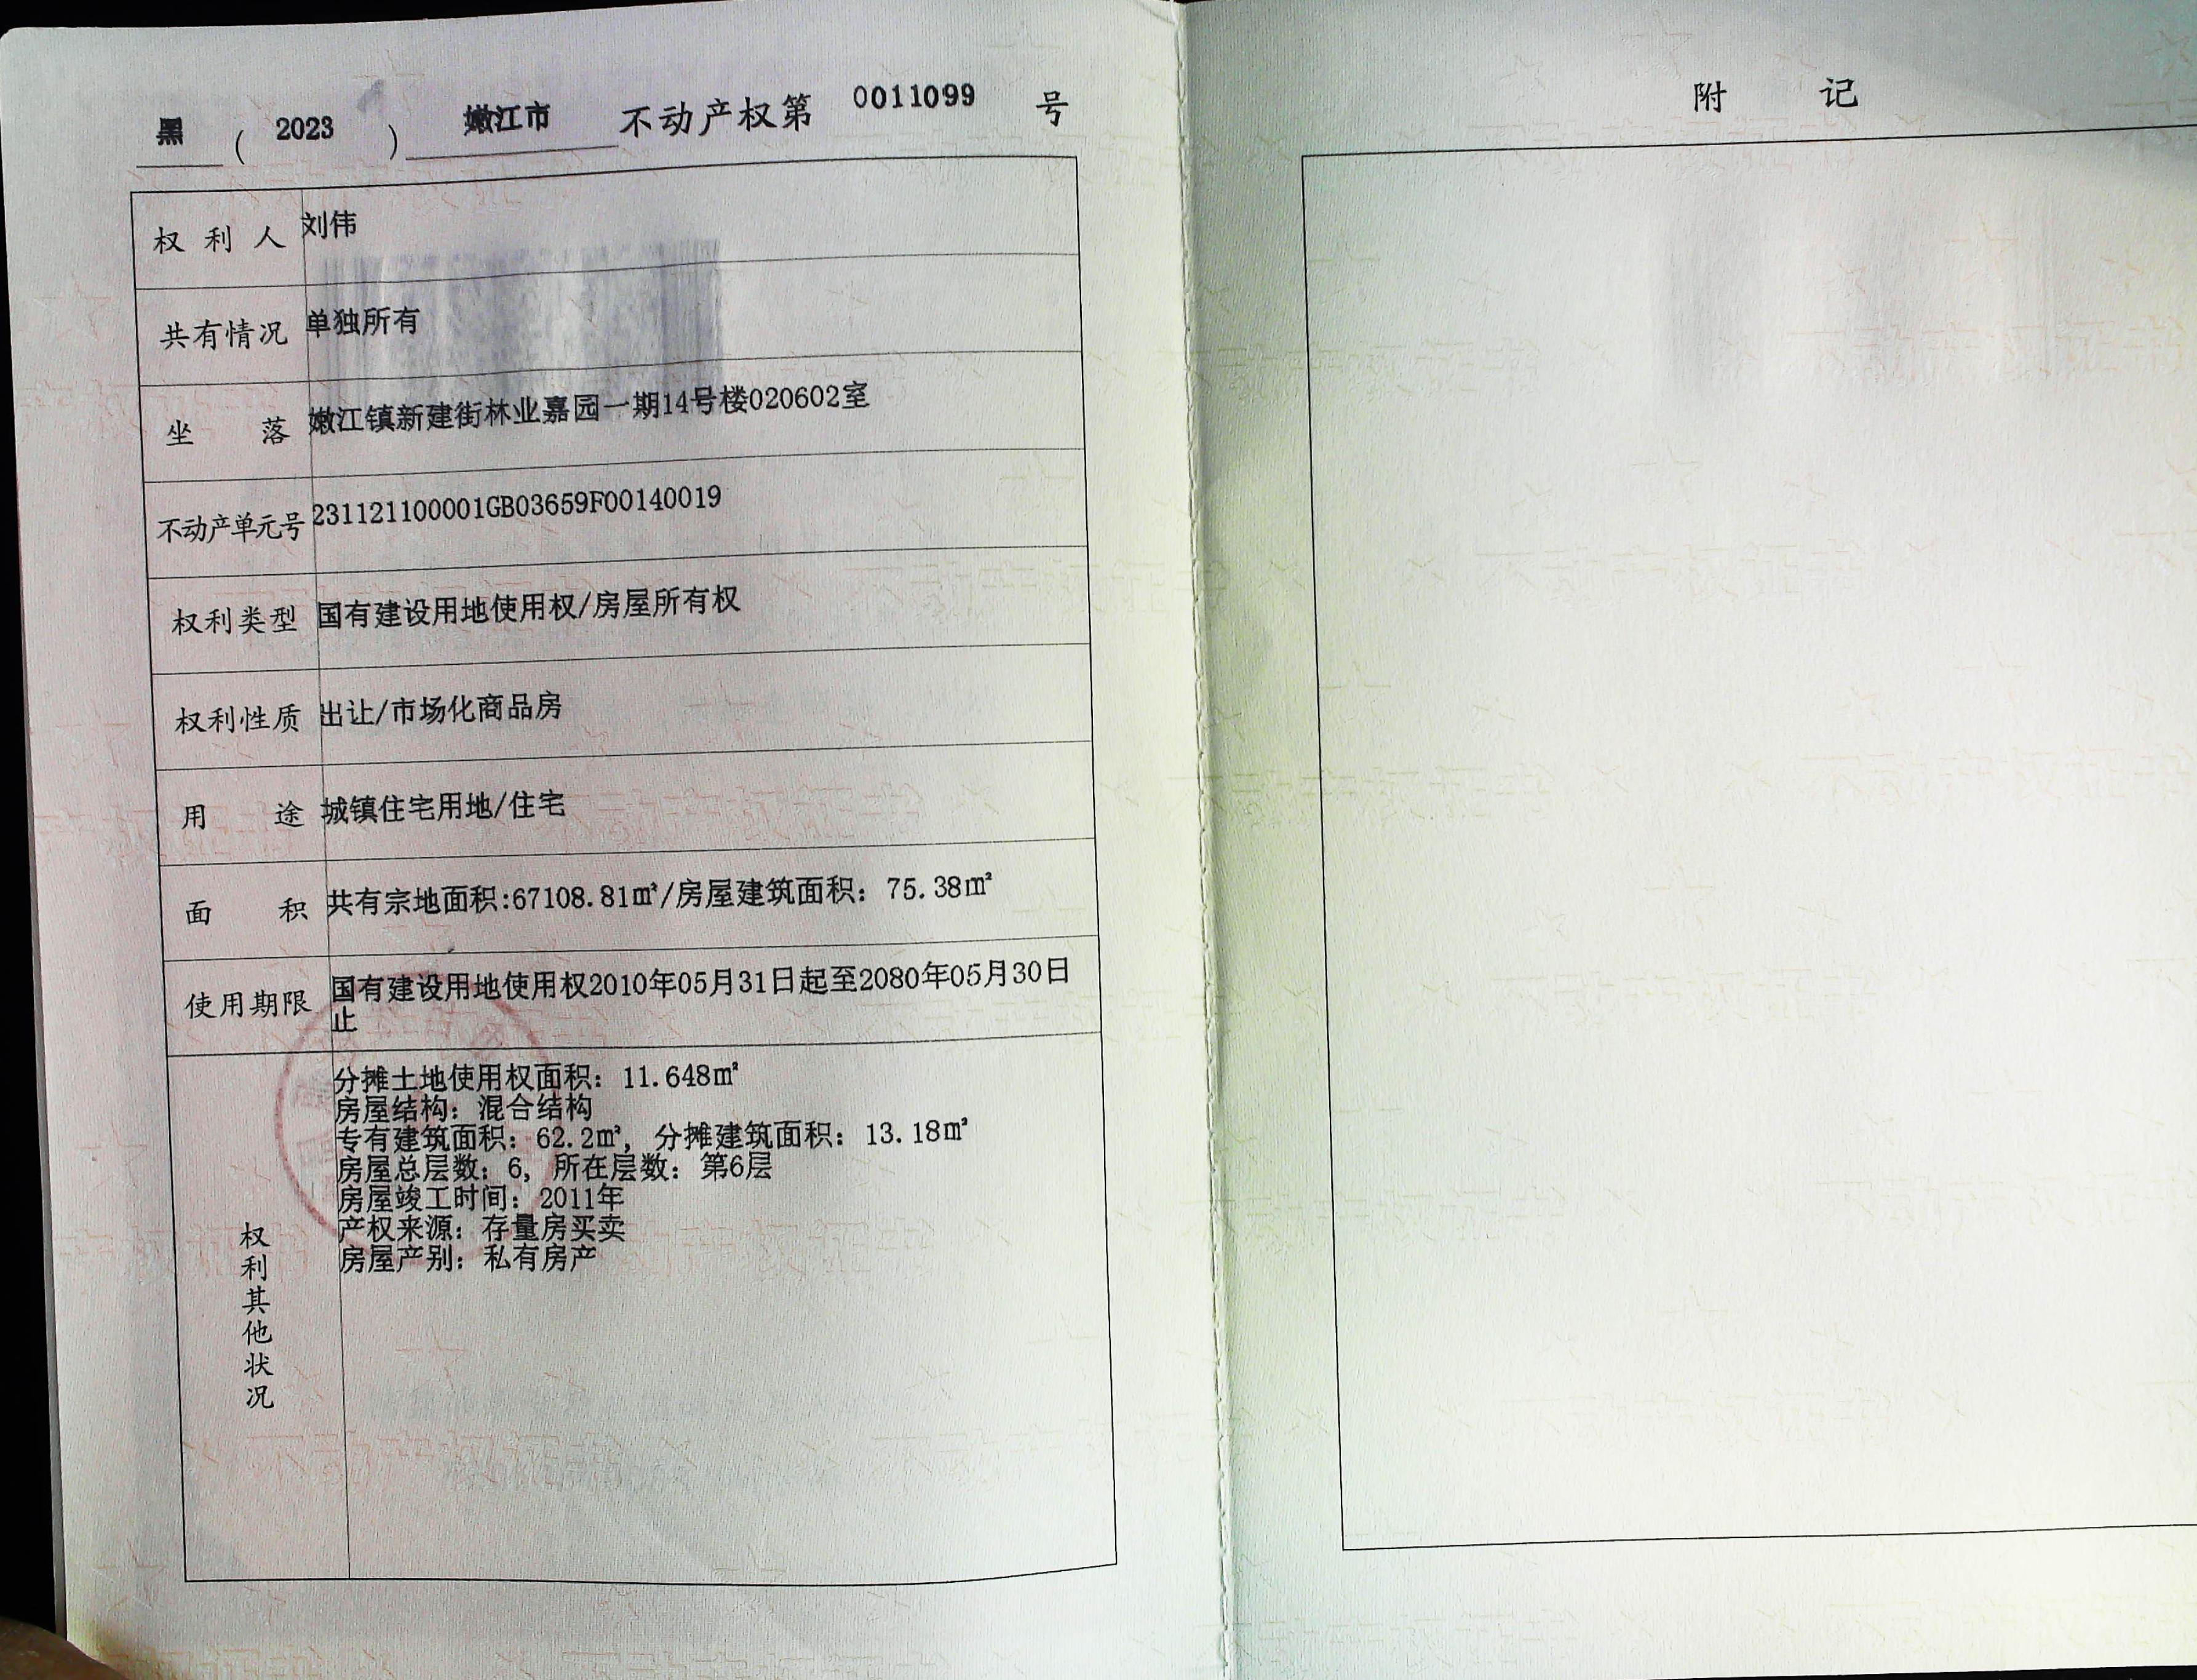 黑 ( 2023 ) 嫩江市 不动产权第 0011099 号
权利人 刘伟
共有情况 单独所有
坐落 嫩江镇新建街林业嘉园一期14号楼020602室
不动产单元号 231121100001GB03659F00140019
权利类型 国有建设用地使用权/房屋所有权
权利性质 出让/市场化商品房
用途 城镇住宅用地/住宅
面积 共有宗地面积:67108.81㎡/房屋建筑面积：75.38㎡
使用期限 国有建设用地使用权2010年05月31日起至2080年05月30日
止
权利其他状况
分摊土地使用权面积：11.648㎡
房屋结构：混合结构
专有建筑面积：62.2㎡，分摊建筑面积：13.18㎡
房屋总层数：6，所在层数：第6层
房屋竣工时间：2011年
产权来源：存量房买卖
房屋产别：私有房产
附记